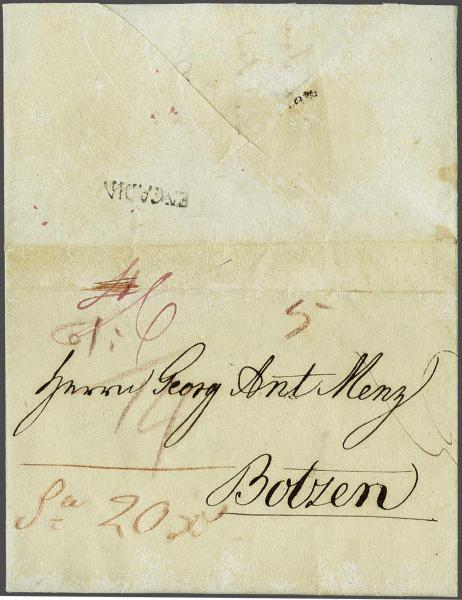 ENGADIN
6
5
Herrn Georg Ant Menz
14
Botzen
Sa 20 xr